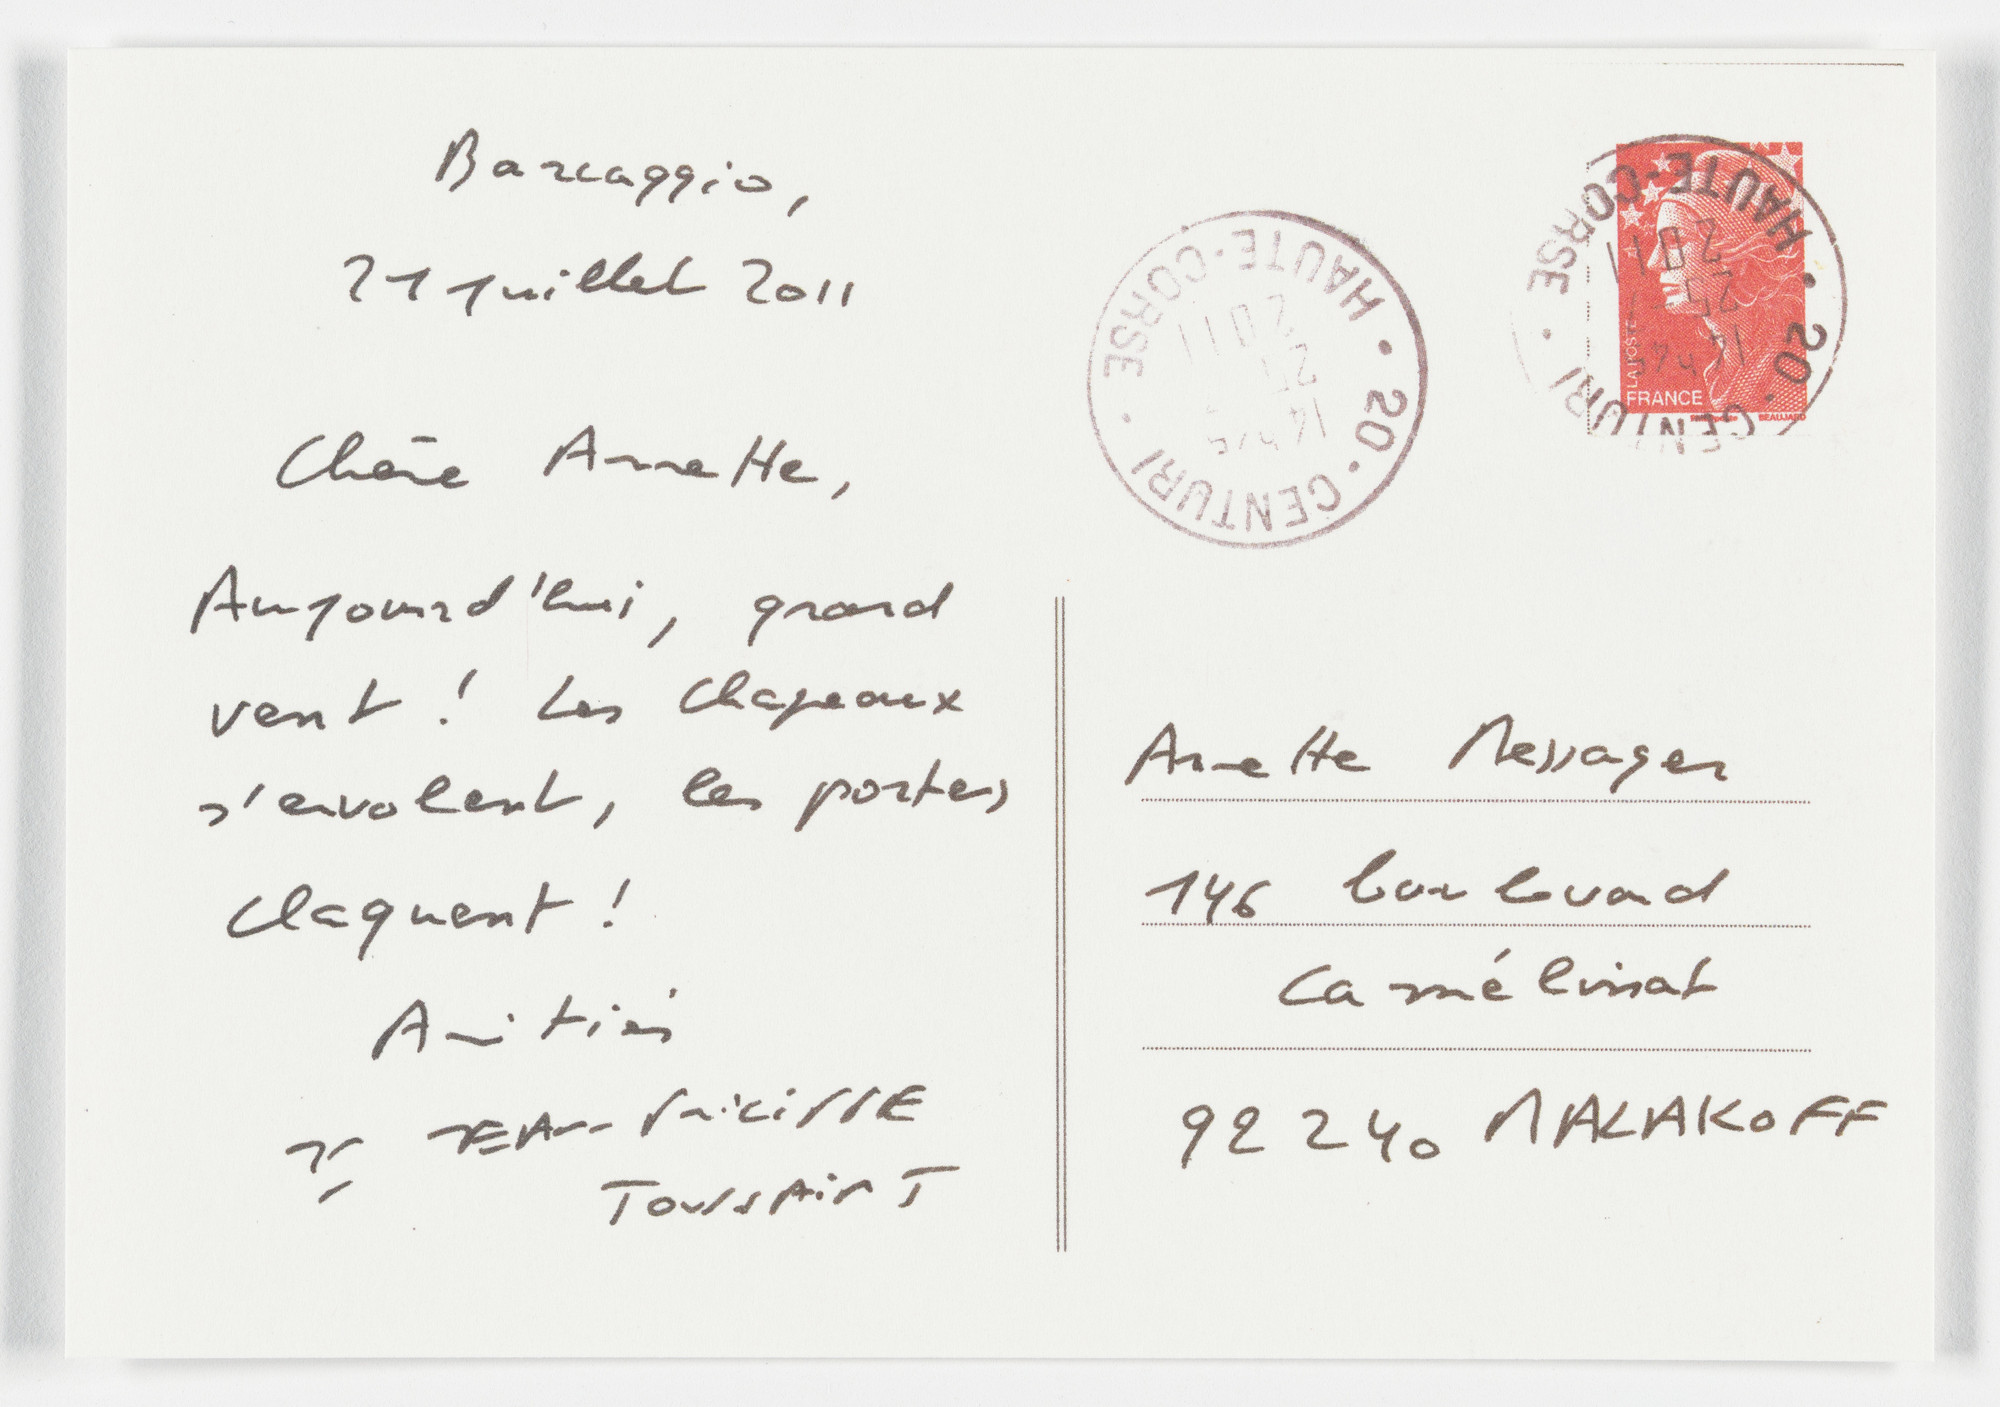 Barcaggio,
21 juillet 2011
Chère Annette,
Aujourd'hui, grand
vent ! Les chapeaux
s'envolent, les portes
claquent !
Amitiés
JEAN-PHILIPPE
TOUSSAINT
HAUTE-CORSE
2011
25
14 h
20 · CENTURI ·
HAUTE-CORSE
2011
25 - 7
20 · CENTURI ·
LA POSTE
FRANCE
BEAUJARD
Annette Messager
146 boulevard
Camélinat
92240 MALAKOFF